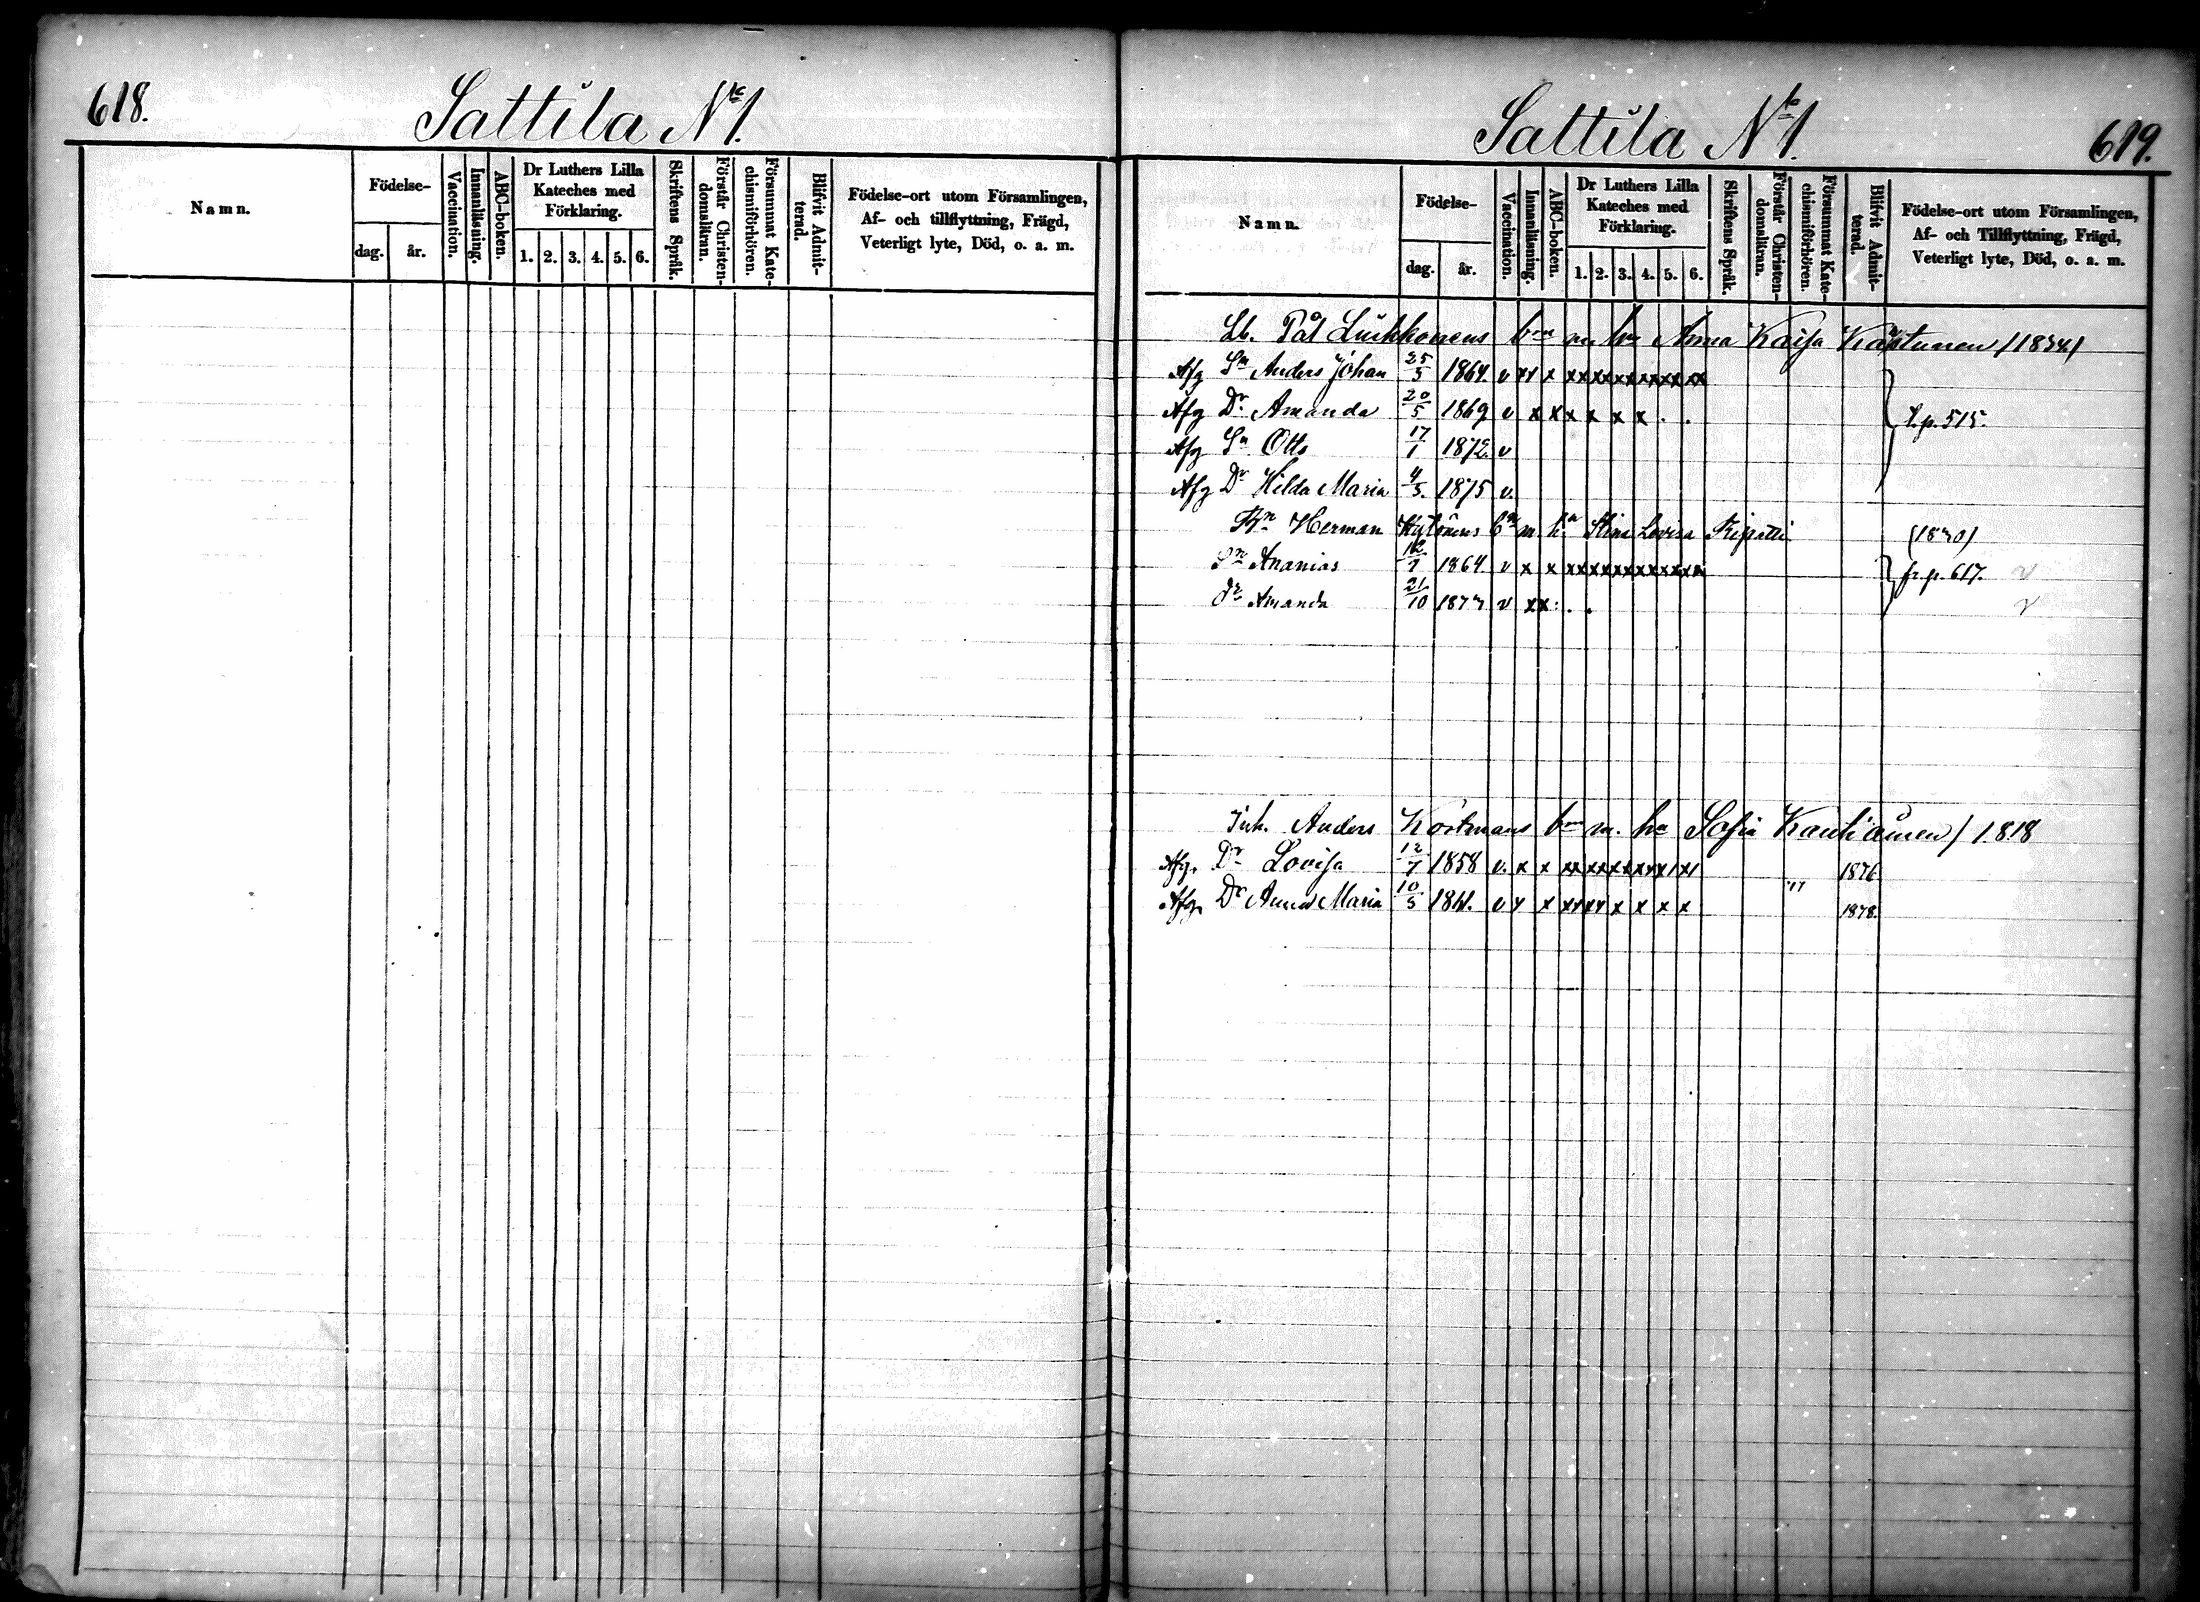 618.
Sattila No 1.
Namn.
Födelse-
dag.
år.
Vaccination.
Innanläsning.
ABC-boken.
Dr Luthers Lilla
Kateches med
Förklaring.
1. 2. 3. 4. 5. 6.
Skriftens Språk.
Förstår Christen-
domsläran.
Försummat Kate-
chismiförhören.
Blifvit Admit-
terad.
Födelse-ort utom Församlingen,
Af- och tillflyttning, Frägd,
Veterligt lyte, Död, o. a. m.
Sattila No 1.
619.
Namn.
Födelse-
dag.
år.
Vaccination.
Innanläsning.
ABC-boken.
Dr Luthers Lilla
Kateches med
Förklaring.
1. 2. 3. 4. 5. 6.
Skriftens Språk.
Förstår Christen-
domsläran.
Försummat Kate-
chismiförhören.
Blifvit Admit-
terad.
Födelse-ort utom Församlingen,
Af- och Tillflyttning, Frägd,
Veterligt lyte, Död, o. a. m.
Lb. Pål Luukkonens bn m. hu Anna Kaisa (1834)
Afg Sn Anders Johan 25/3 1864. v xx x xxxxxxxxxxx
Afg Dr Amanda 20/5 1869 v x x x x x x . .
t.p. 515.
Afg Sn Otto 17/1 1872. v
Afg Dr Hilda Maria 4/3. 1875 v.
Herman bn m. hu Stina Lovisa Ripatti (1830)
Sn Ananias 12/1 1864 v x x xxxxxxxxxxxx
fr. p. 617. v
dr Amanda 21/10 1873 v xx . . v
Inh. Anders bn m. hu Sofia / 1818
Afg. Dr Lovisa 12/7 1858 v. x x xxxxxxxxxxxx 1876
Afg. Dr Anna Maria 10/3 1861. v x x xxxx x x x x " 1878.